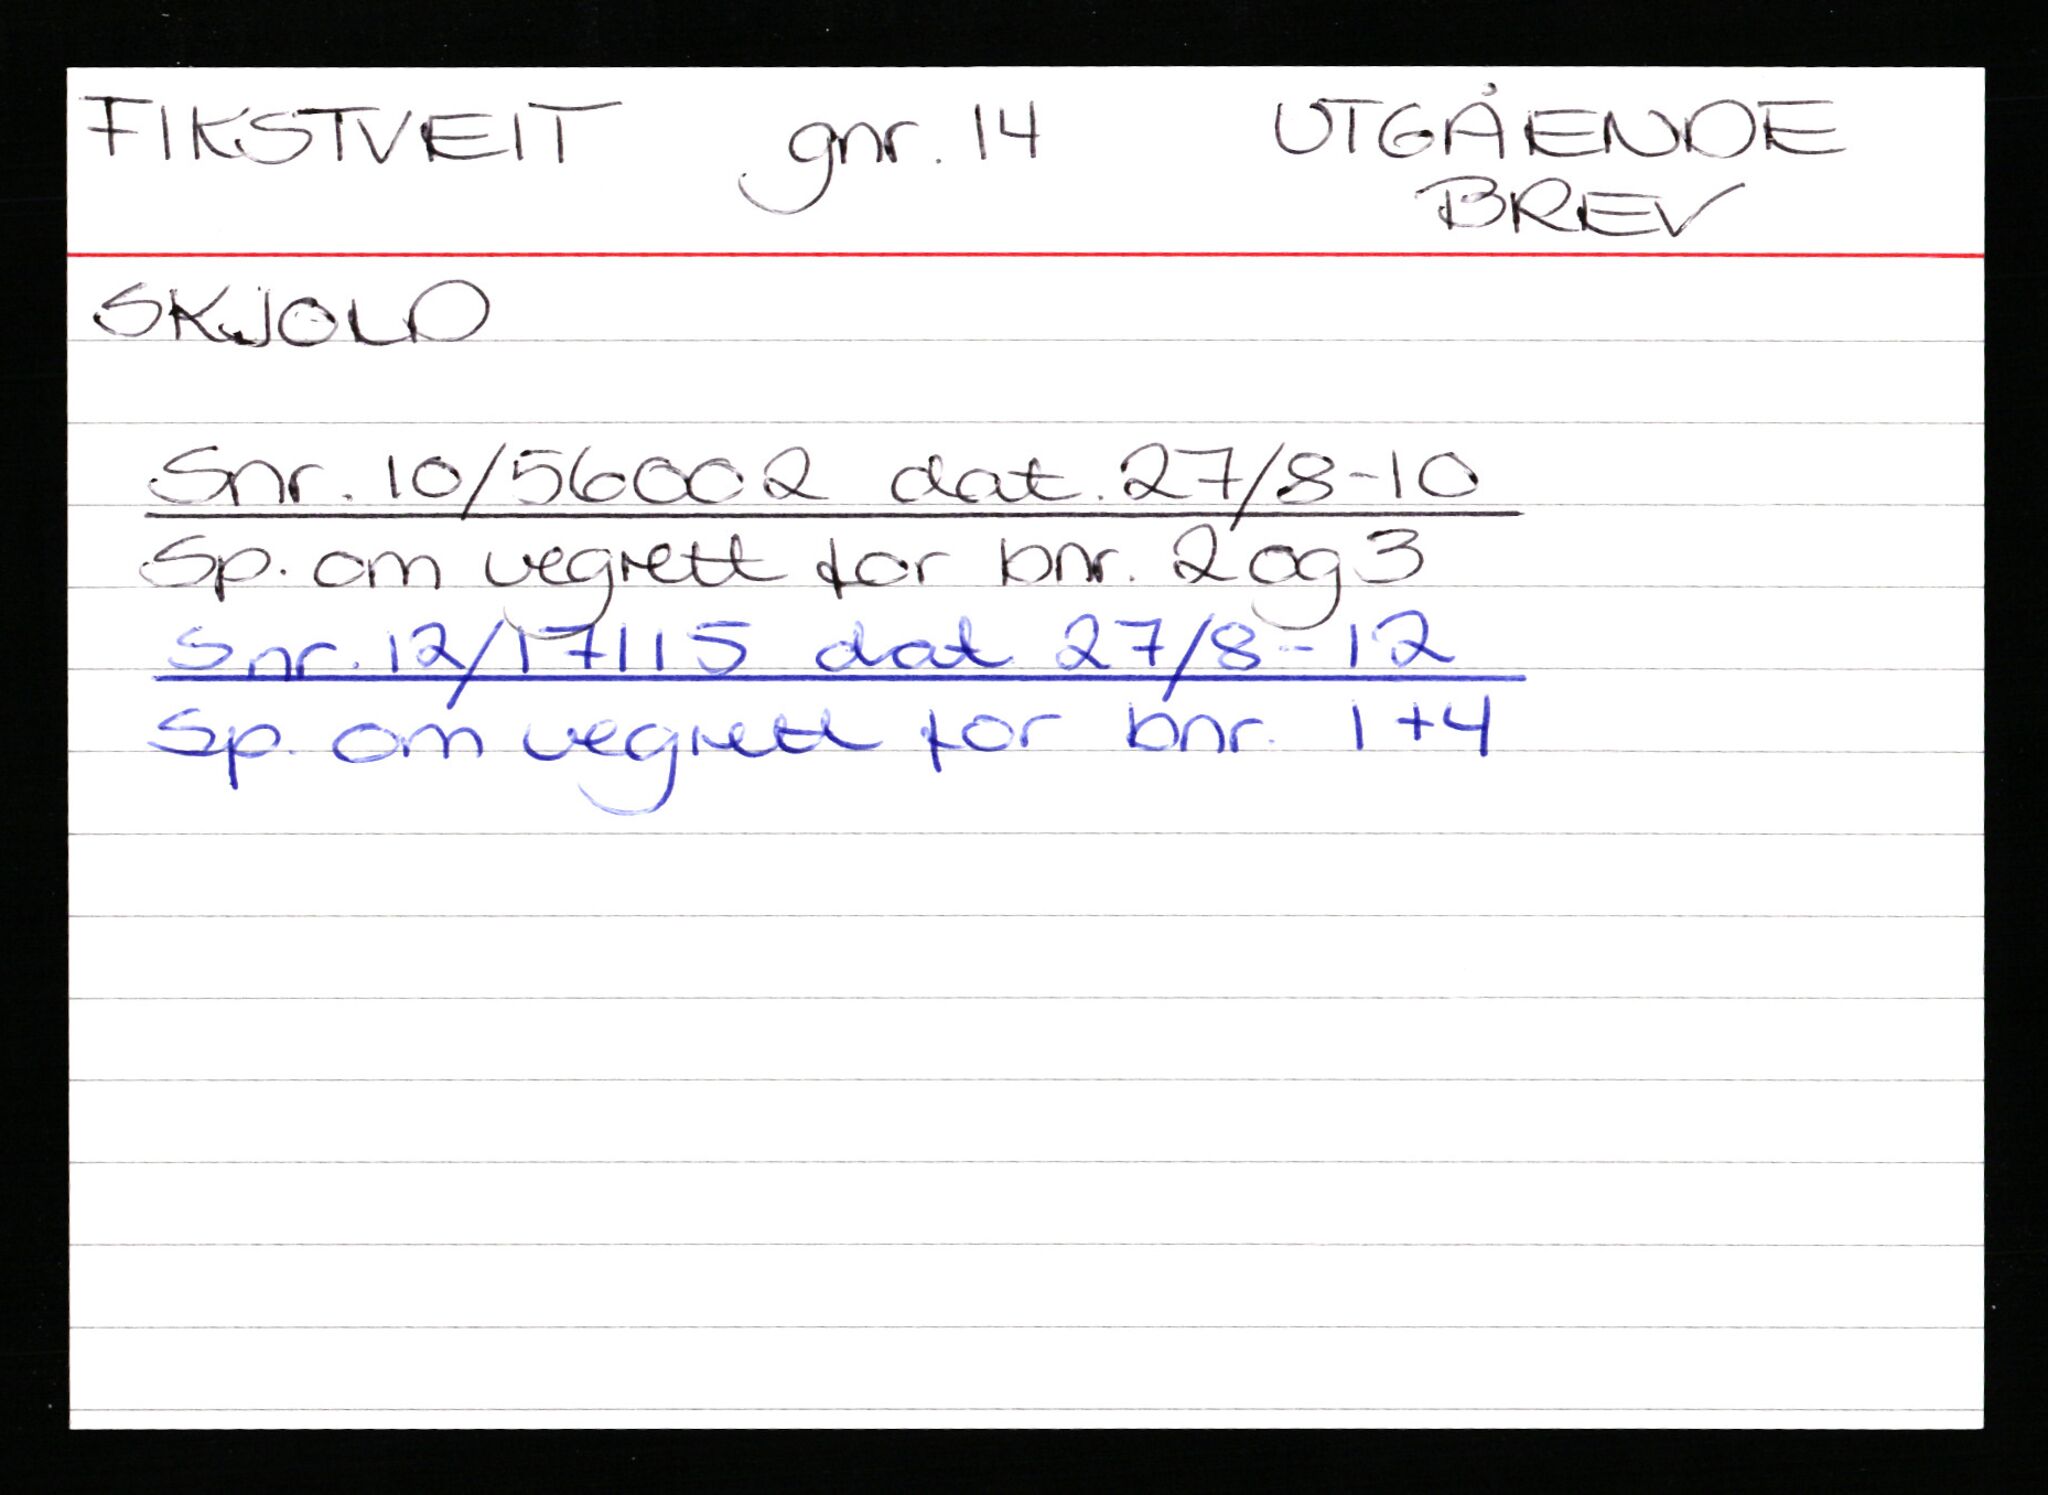 FIKSTVEIT gnr. 14 UTGÅENDE
BREV
SKJOLD
Snr. 10/56002 dat. 27/8-10
Sp. om vegrett for bnr. 2 og 3
Snr. 12/17115 dat. 27/8-12
Sp. om vegrett for bnr. 1+4